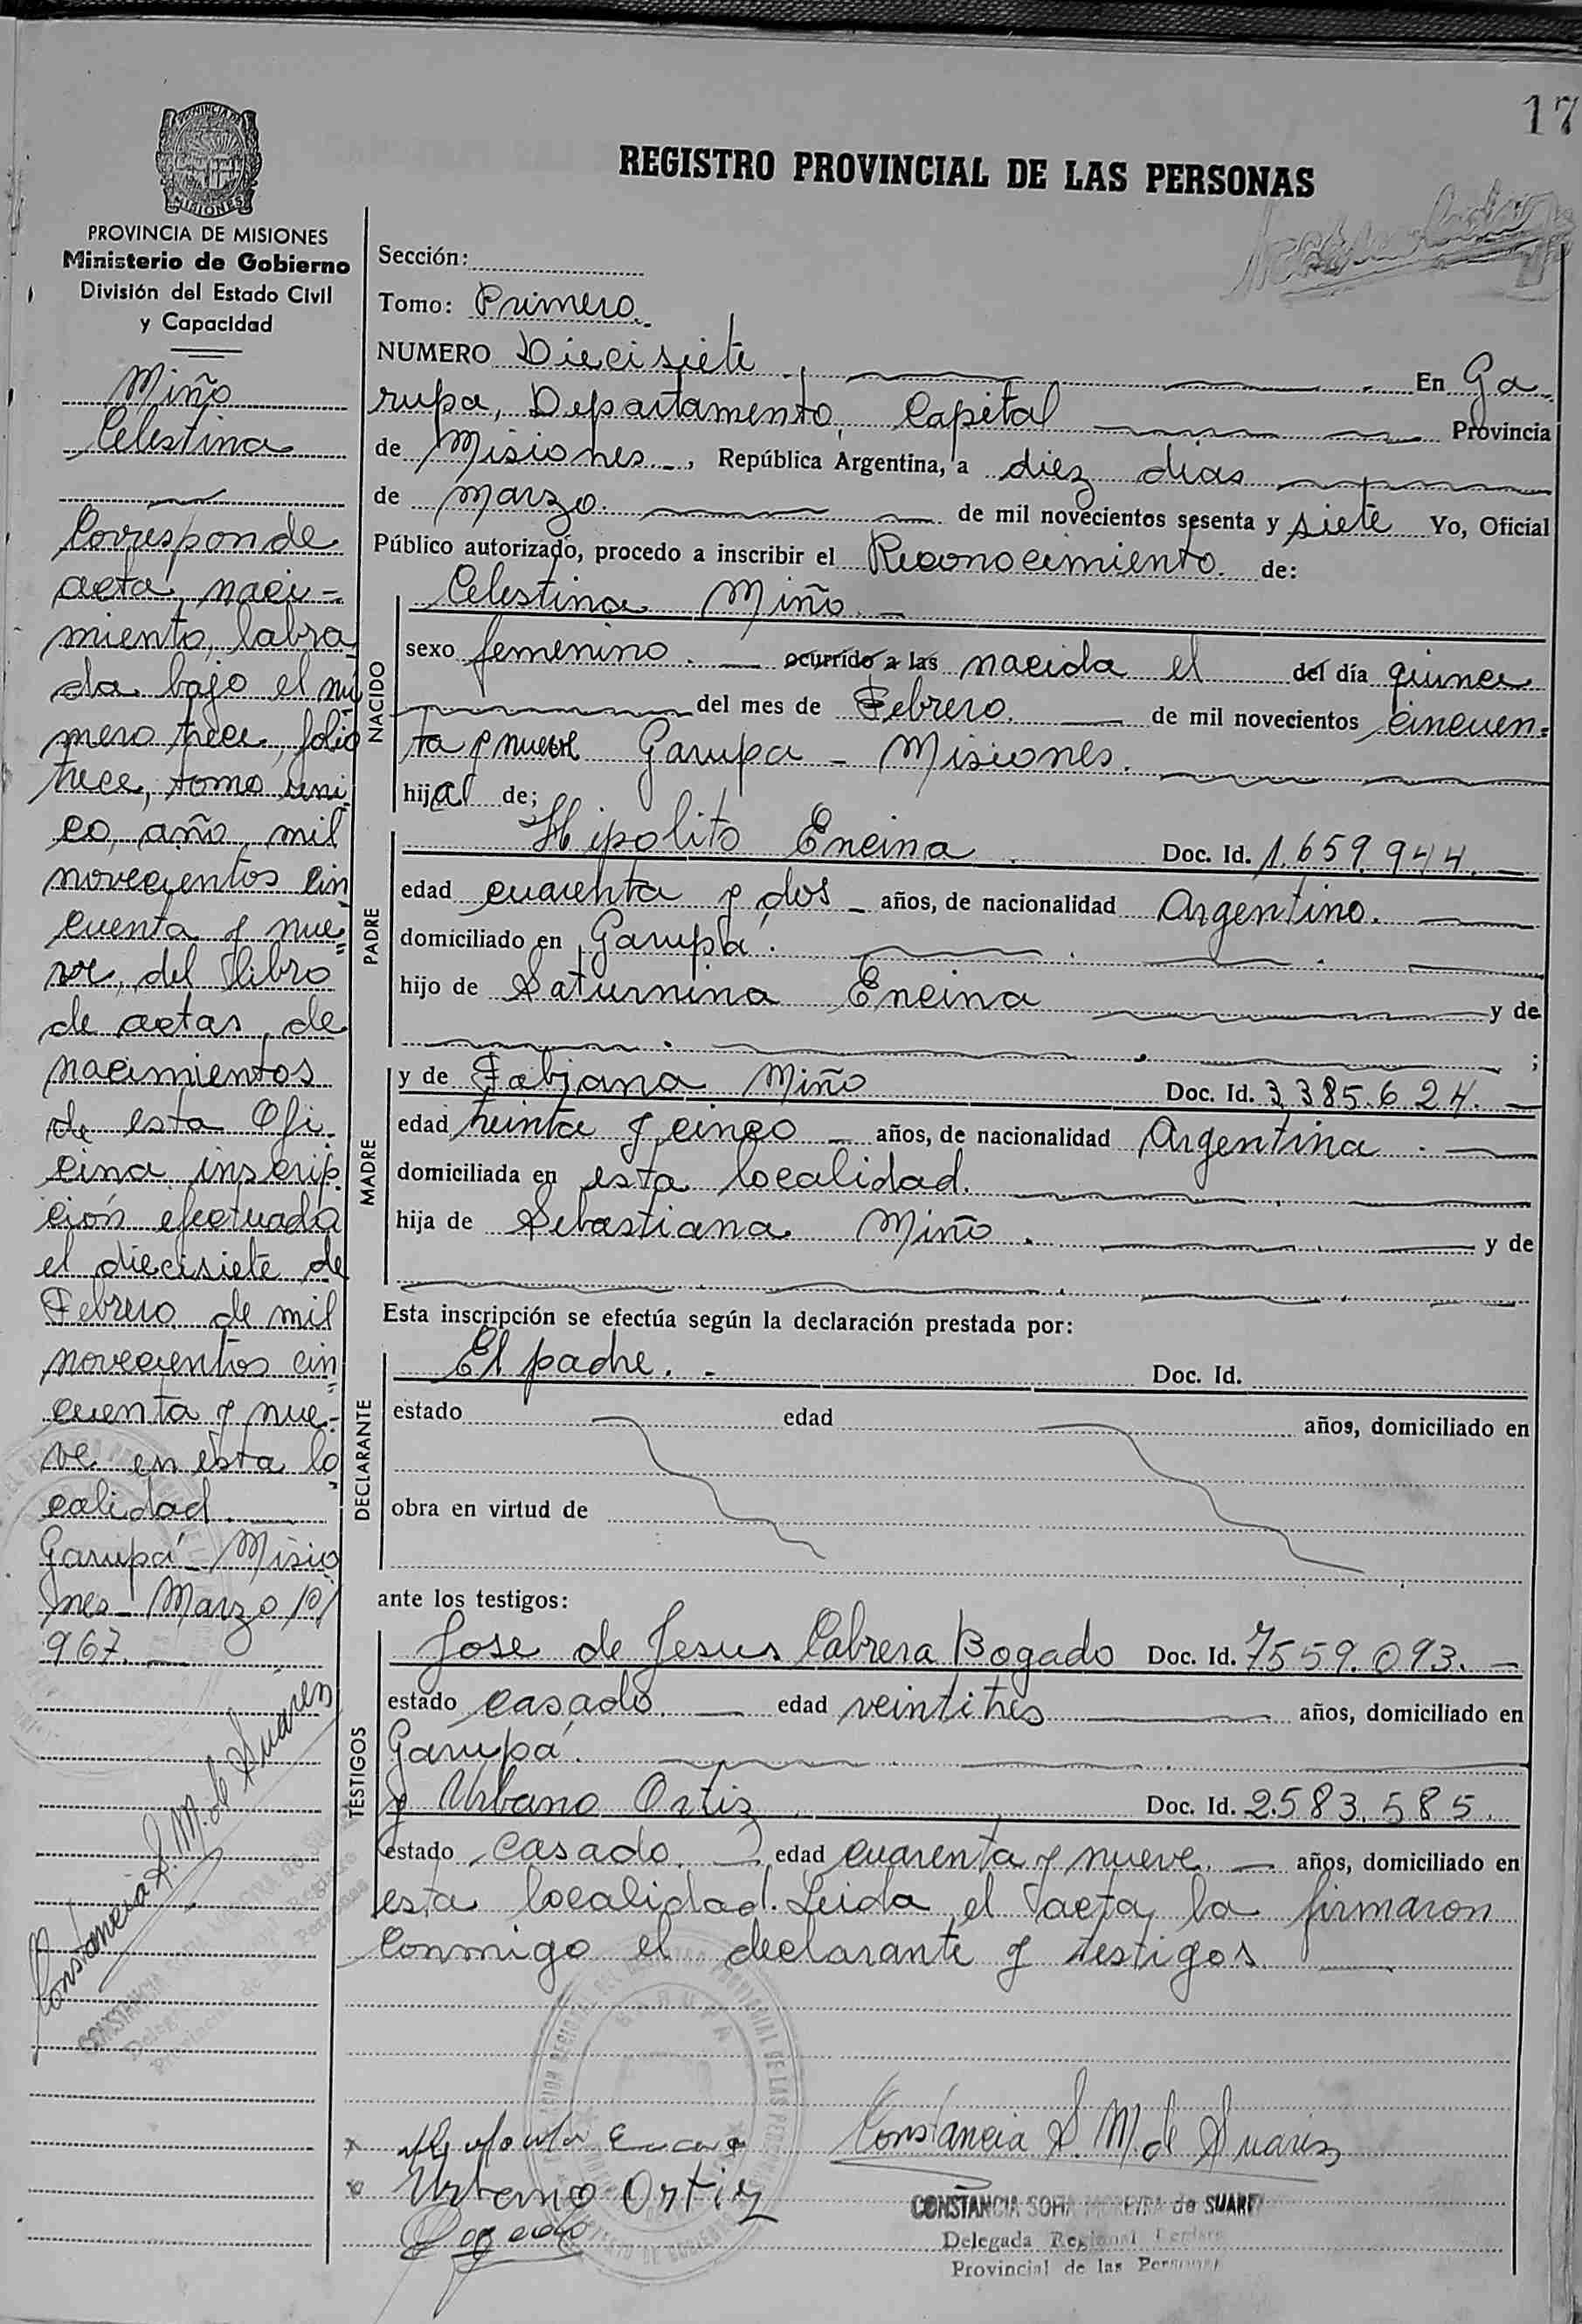 17
REGISTRO PROVINCIAL DE LAS PERSONAS
PROVINCIA DE
MISIONES
PROVINCIA DE MISIONES
Ministerio de Gobierno
División del Estado Civil
y Capacidad
Miño
Celestina
Corresponde
acta naci-
miento, labra
da bajo el nú
mero trece, folio
trece, tomo úni
co, año mil
novecientos cin
cuenta y nue
ve, del libro
de actas de
nacimientos
de esta Ofi
cina inscrip
ción efectuada
el diecisiete de
Febrero de mil
novecientos cin
cuenta y nue-
ve en esta lo
calidad.
Garupá - Misio
nes - Marzo 10/
967. —
Constancia S. M. de Suarez
Sección:
Tomo: Primero.
NUMERO Diecisiete En Ga
rupa, Departamento, Capital Provincia
de Misiones, República Argentina, a diez dias
de Marzo. de mil novecientos sesenta y siete Yo, Oficial
Público autorizado, procedo a inscribir el Reconocimiento. de:
NACIDO
Celestina Miño. —
sexo femenino. — ocurrido a las nacida el del día quince
del mes de Febrero. — de mil novecientos cincuen-
ta y nueve Garupa - Misiones.
hija de;
PADRE
Hipolito Encina Doc. Id. 1.659.944. —
edad cuarenta y dos — años, de nacionalidad Argentino. —
domiciliado en Garupá.
hijo de Saturnina Encina y de
;
MADRE
y de Fabiana Miño Doc. Id. 3,385.624. —
edad treinta y cinco — años, de nacionalidad Argentina. —
domiciliada en esta localidad.
hija de Sebastiana Miño. y de
Esta inscripción se efectúa según la declaración prestada por:
DECLARANTE
El padre. - Doc. Id.
estado edad años, domiciliado en
obra en virtud de
ante los testigos:
TESTIGOS
Jose de Jesus Cabrera Bogado Doc. Id. 7559.093. —
estado casado. — edad veintitres años, domiciliado en
Garupá.
y Urbano Ortiz Doc. Id. 2.583.585.
estado casado. — edad cuarenta y nueve. — años, domiciliado en
esta localidad. Leida el acta, la firmaron
Conmigo el declarante y testigos. —
Urbano Ortiz
Bogado
Constancia S. M. de Suarez
CONSTANCIA SOFIA MOREYRA de SUAREZ
Delegada Regional
Provincial de las Personas